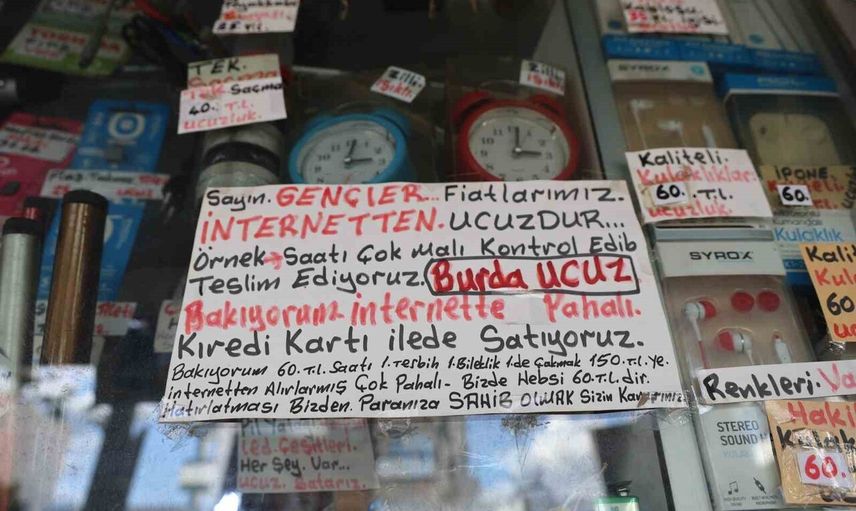 25 TL
TEK
TEK Saçma
40. T.L.
ucuzluk.
Zilli
Işıklı
Zilli
Işıklı
SYROX
Kaliteli.
Kulaklıklar
60. T.L.
ucuzluk.
İPONE
60.
Kulaklık
Sayın. GENÇLER... Fiatlarımız.
İNTERNETTEN. UCUZDUR...
Örnek → Saatı Çok Malı Kontrol Edib
Teslim Ediyoruz. Burda UCUZ
Bakıyorum internette Pahalı.
Kıredi Kartı ilede Satıyoruz.
Bakıyorum 60.T.L. Saatı 1.Terbih 1.Bileklik 1.de Çakmak 150.T.L.ye.
internetten Alırlarmış Çok Pahalı- Bizde Hebsi 60.T.L.dir.
Hatırlatması Bizden. Paranıza SAHİB OLMAK Sizin
SYROX
60
Renkleri. Va
STEREO
SOUND
60.
Led. Çeşitleri.
Her Şey. Var...
ucuz. Satarız.